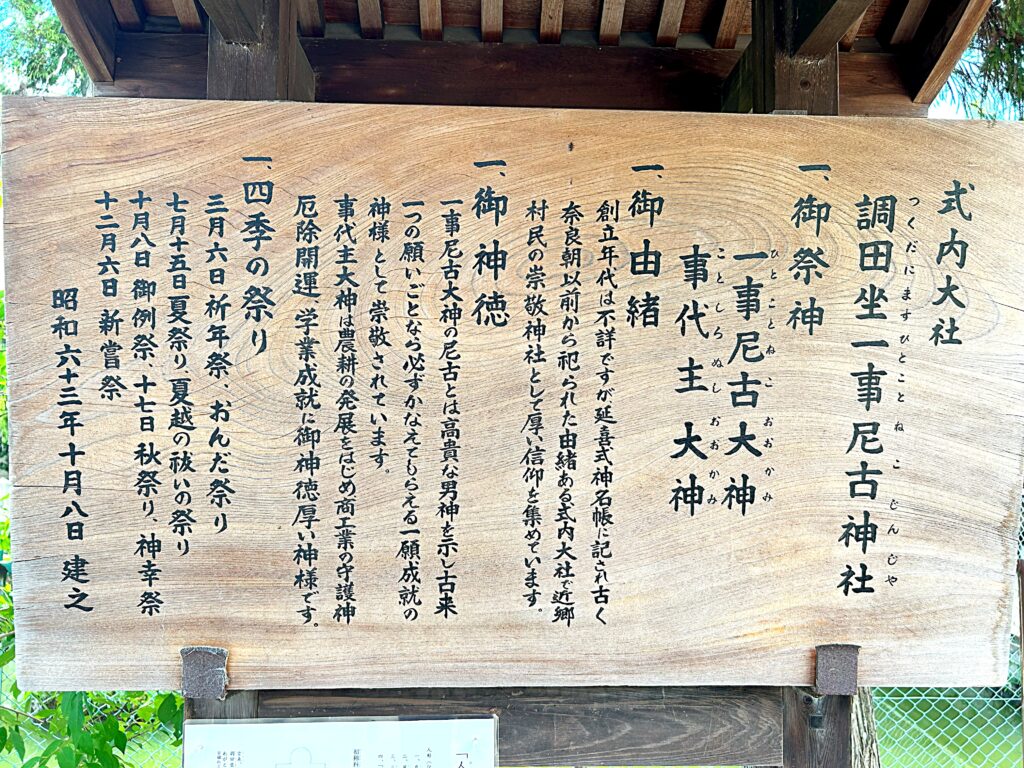 式内大社
調田坐一事尼古神社
つくだにますひとことねこじんじや
一、御祭神
一事尼古大神
ひとことねこおおかみ
事代主大神
ことしろぬしおおかみ
一、御由緒
創立年代は不詳ですが延喜式神名帳に記され古く
奈良朝以前から祀られた由緒ある式内大社で近郷
村民の崇敬神社として厚い信仰を集めています。
一、御神徳
一事尼古大神の尼古とは高貴な男神を示し古来
一つの願いごとなら必ずかなえてもらえる一願成就の
神様として崇敬されています。
事代主大神は農耕の発展をはじめ商工業の守護神
厄除開運学業成就に御神徳厚い神様です。
一、四季の祭り
三月六日祈年祭、おんだ祭り
七月十五日夏祭り、夏越の祓いの祭り
十月八日御例祭、十七日秋祭り、神幸祭
十二月六日新嘗祭
昭和六十三年十月八日建之